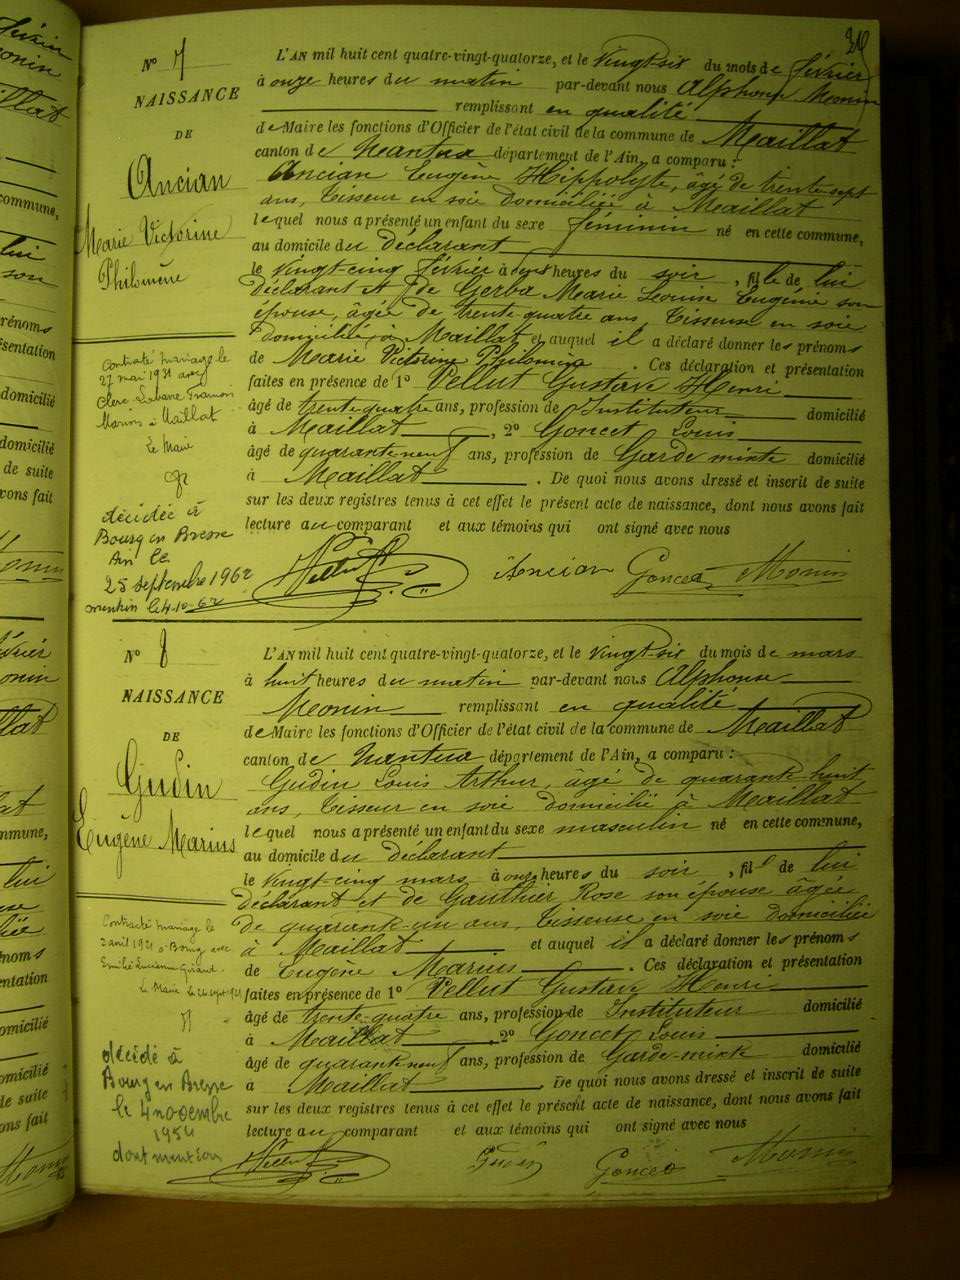 N° 7
NAISSANCE
DE
Ancian
Marie Victorine
Philomène
L'AN mil huit cent quatre-vingt-quatorze, et le vingt-six du mois de février
à onze heures du matin par-devant nous Alphonse Monin
remplissant en qualité
de Maire les fonctions d'Officier de l'état civil de la commune de Maillat
canton de Nantua département de l'Ain, a comparu :
Ancian Eugène Hippolyte, âgé de trente-sept
ans, Tisseur en soie domicilié à Maillat
lequel nous a présenté un enfant du sexe féminin né en cette commune,
au domicile du déclarant
le vingt-cinq février à heures du soir, fille de lui
déclarant et de Gerba Marie Louise Eugénie son
épouse, âgée de trente-quatre ans, Tisseuse en soie
domiciliée à Maillat et auquel il a déclaré donner les prénoms
de Marie Victorine Philomène. Ces déclaration et présentation
faites en présence de 1° Pellut Gustave Henri
âgé de trente-quatre ans, profession de Instituteur domicilié
à Maillat, 2° Goncet Louis
âgé de quarante-neuf ans, profession de Garde mixte domicilié
à Maillat. De quoi nous avons dressé et inscrit de suite
sur les deux registres tenus à cet effet le présent acte de naissance, dont nous avons fait
lecture au comparant et aux témoins qui ont signé avec nous
Pellut Ancian Goncet Monin
Contracté mariage le
27 mai 1931 avec
Clerc
Marius à Maillat
Le Maire
décédée à
Bourg en Bresse
Ain le
25 septembre 1962
mention le 4-10-62
N° 8
NAISSANCE
DE
Gudin
Eugène Marius
L'AN mil huit cent quatre-vingt-quatorze, et le vingt-six du mois de mars
à huit heures du matin par-devant nous Alphonse
Monin remplissant en qualité
de Maire les fonctions d'Officier de l'état civil de la commune de Maillat
canton de Nantua département de l'Ain, a comparu :
Gudin Louis Arthur, âgé de quarante-huit
ans, Tisseur en soie domicilié à Maillat
lequel nous a présenté un enfant du sexe masculin né en cette commune,
au domicile du déclarant
le vingt-cinq mars à onze heures du soir, fils de lui
déclarant et de Gauthier Rose son épouse âgée
de quarante-un ans, Tisseuse en soie domiciliée
à Maillat et auquel il a déclaré donner les prénoms
de Eugène Marius. Ces déclaration et présentation
faites en présence de 1° Pellut Gustave Henri
âgé de trente-quatre ans, profession de Instituteur domicilié
à Maillat, 2° Goncet Louis
âgé de quarante-neuf ans, profession de Garde-mixte domicilié
à Maillat. De quoi nous avons dressé et inscrit de suite
sur les deux registres tenus à cet effet le présent acte de naissance, dont nous avons fait
lecture au comparant et aux témoins qui ont signé avec nous
Pellut Gudin Goncet Monin
Contracté mariage le
2 avril 1921 à Bourg avec
Emilie Lucienne Giraud
Le Maire
décédé à
Bourg en Bresse
le 4 novembre
1954
dont mention